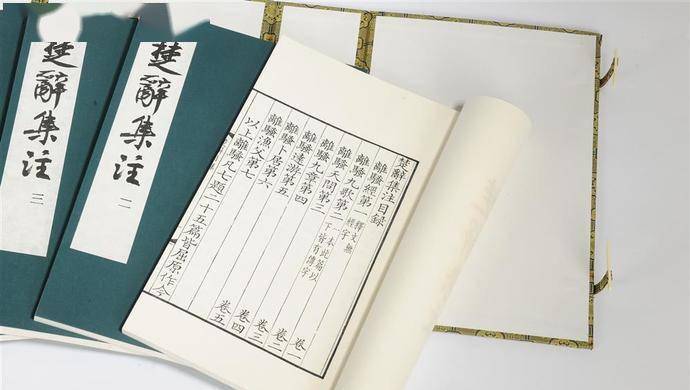 楚辭集注
三
楚辭集注
二
楚辭集注目錄
離騷經第一 釋文無經字 卷一
離騷九歌第二 一本此篇以下皆有傳字 卷二
離騷天問第三 卷三
離騷九章第四 卷四
離騷遠游第五 卷五
離騷卜居第六
離騷漁父第七
以上離騷凡七題二十五篇皆屈原作今